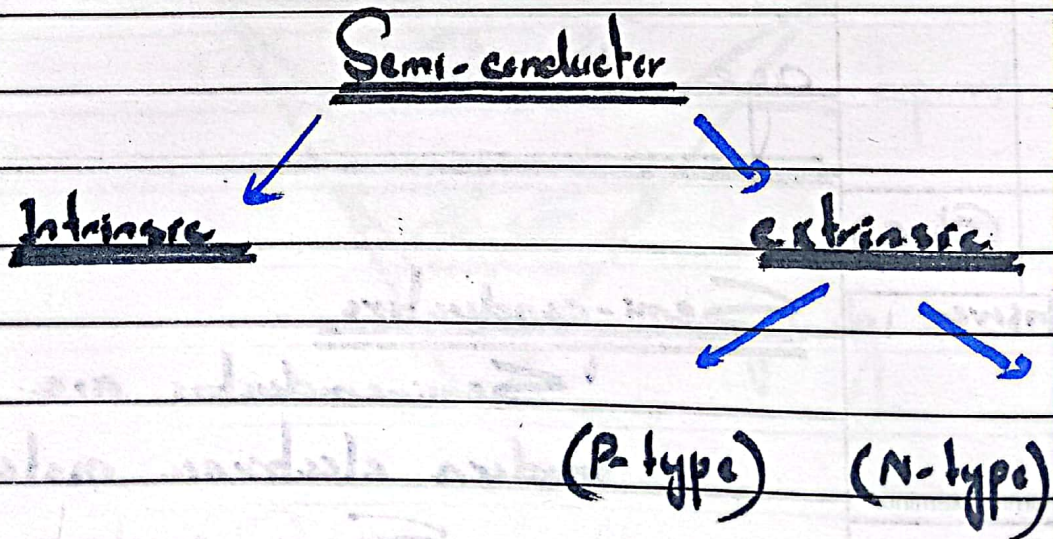 Semi-conductor
Intrinsic extrinsic
(P-type) (N-type)